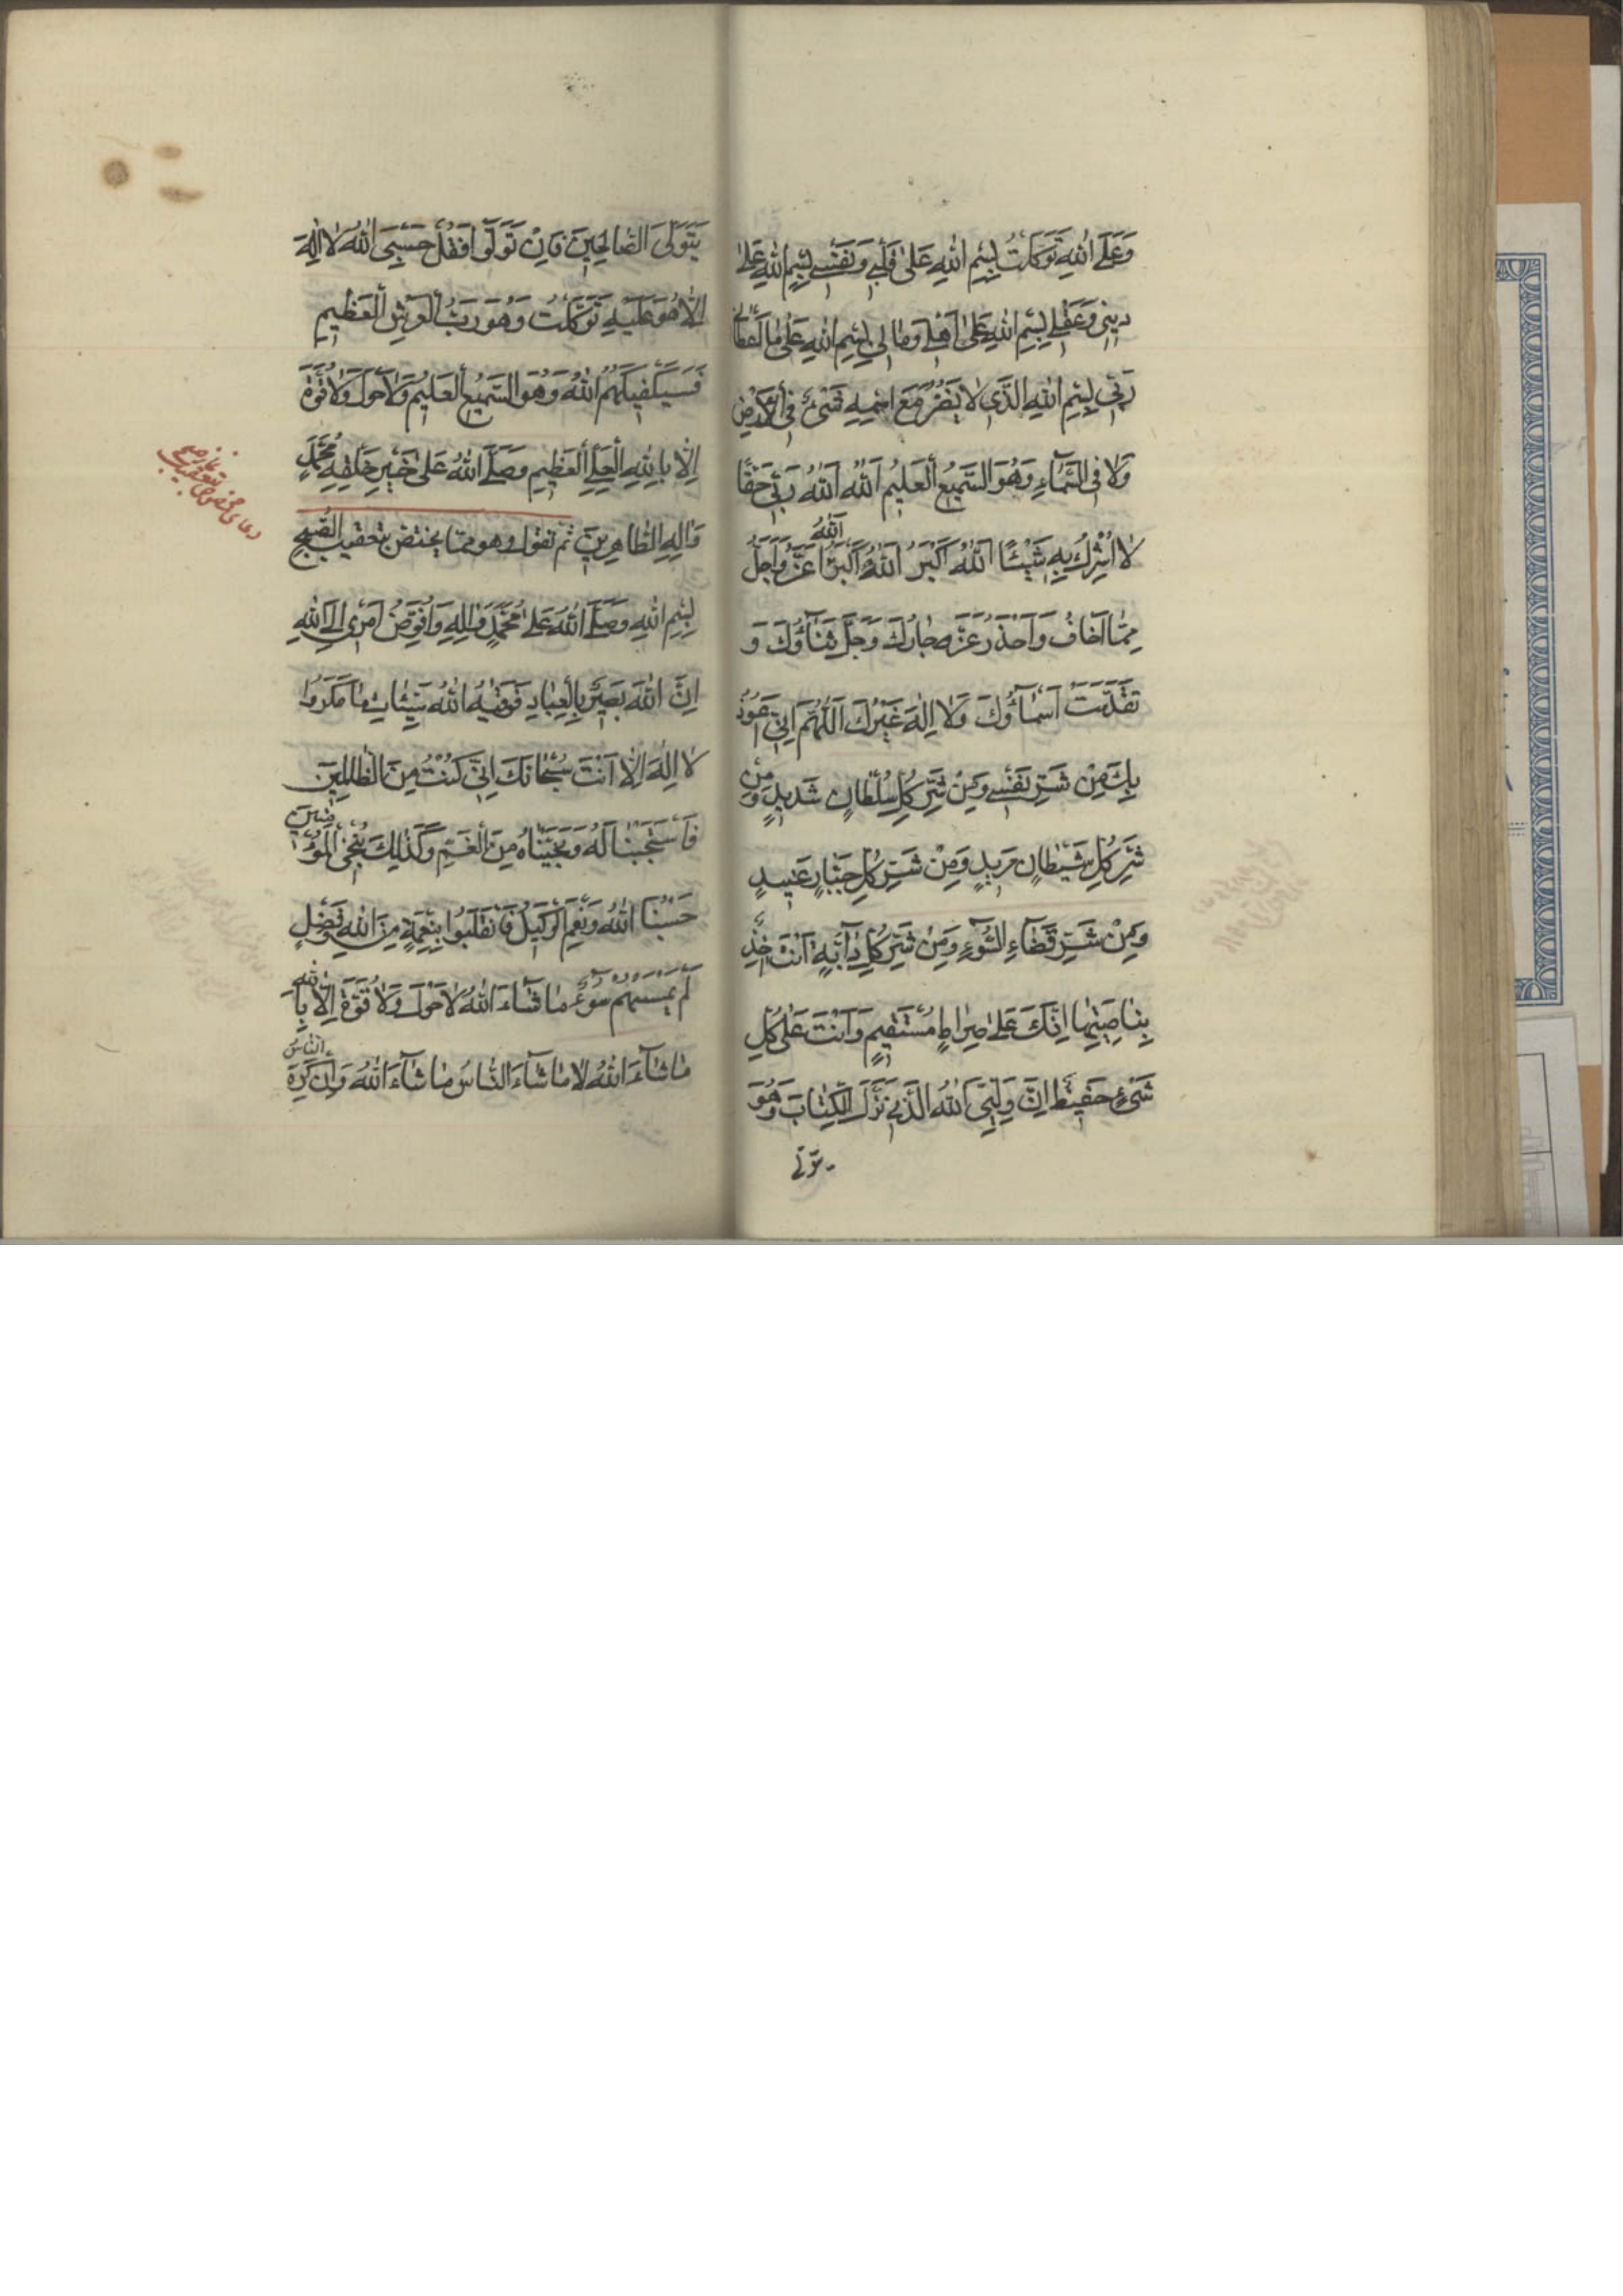 وَعَلَى اللهِ تَوَكَّلْتُ بِسْمِ اللهِ عَلىٰ قَلْبِي وَنَفْسِي بِسْمِ اللهِ عَلىٰ
دِينِي وَعَقْلِي بِسْمِ اللهِ عَلىٰ اَهْلِي وَمَالِي بِسْمِ اللهِ عَلىٰ مَا اَعْطَانِي
رَبِّي بِسْمِ اللهِ الَّذِي لَا يَضُرُّ مَعَ اسْمِهِ شَيْءٌ فِي الْاَرْضِ
وَلَا فِي السَّمَآءِ وَهُوَ السَّمِيعُ الْعَلِيمُ اَللهُ اَللهُ رَبِّي حَقًّا
لَا اُشْرِكُ بِهِ شَيْئًا اَللهُ اَكْبَرُ اَللهُ اَكْبَرُ اَللهُ اَعَزُّ وَاَجَلُّ
مِمَّا اَخَافُ وَاَحْذَرُ عَزَّ جَارُكَ وَجَلَّ ثَنَآؤُكَ وَ
تَقَدَّسَتْ اَسْمَآؤُكَ وَلَا اِلٰهَ غَيْرُكَ اَللّٰهُمَّ اِنِّي اَعُوذُ
بِكَ مِنْ شَرِّ نَفْسِي وَمِنْ شَرِّ كُلِّ سُلْطَانٍ شَدِيدٍ وَمِنْ
شَرِّ كُلِّ شَيْطَانٍ مَرِيدٍ وَمِنْ شَرِّ كُلِّ جَبَّارٍ عَنِيدٍ
وَمِنْ شَرِّ قَضَآءِ السُّوٓءِ وَمِنْ شَرِّ كُلِّ دَآبَّةٍ اَنْتَ اٰخِذٌ
بِنَاصِيَتِهَا اِنَّكَ عَلىٰ صِرَاطٍ مُسْتَقِيمٍ وَاَنْتَ عَلىٰ كُلِّ
شَيْءٍ حَفِيظٌ اِنَّ وَلِيِّيَ اللهُ الَّذِي نَزَّلَ الْكِتَابَ وَهُوَ
يتولى
يَتَوَلَّى الصَّالِحِينَ فَاِنْ تَوَلَّوْا فَقُلْ حَسْبِيَ اللهُ لَا اِلٰهَ
اِلَّا هُوَ عَلَيْهِ تَوَكَّلْتُ وَهُوَ رَبُّ الْعَرْشِ الْعَظِيمِ
فَسَيَكْفِيكَهُمُ اللهُ وَهُوَ السَّمِيعُ الْعَلِيمُ وَلَا حَوْلَ وَلَا قُوَّةَ
اِلَّا بِاللهِ الْعَلِيِّ الْعَظِيمِ وَصَلَّى اللهُ عَلىٰ خَيْرِ خَلْقِهِ مُحَمَّدٍ
وَاٰلِهِ الطَّاهِرِينَ ثم تقول وهو مما يختص بتعقيب الصُّبح
بِسْمِ اللهِ وَصَلَّى اللهُ عَلىٰ مُحَمَّدٍ وَاٰلِهِ وَاُفَوِّضُ اَمْرِي اِلَى اللهِ
اِنَّ اللهَ بَصِيرٌ بِالْعِبَادِ فَوَقٰيهُ اللهُ سَيِّئَاتِ مَا مَكَرُوا
لَا اِلٰهَ اِلَّا اَنْتَ سُبْحَانَكَ اِنِّي كُنْتُ مِنَ الظَّالِمِينَ
فَاسْتَجَبْنَا لَهُ وَنَجَّيْنَاهُ مِنَ الْغَمِّ وَكَذٰلِكَ نُنْجِي الْمُؤْمِنِينَ
حَسْبُنَا اللهُ وَنِعْمَ الْوَكِيلُ فَانْقَلَبُوا بِنِعْمَةٍ مِنَ اللهِ وَفَضْلٍ
لَمْ يَمْسَسْهُمْ سُوٓءٌ مَا شَآءَ اللهُ لَا حَوْلَ وَلَا قُوَّةَ اِلَّا بِاللهِ
مَا شَآءَ اللهُ لَا مَا شَآءَ النَّاسُ مَا شَآءَ اللهُ وَاِنْ كَرِهَ النَّاسُ
دعای مخصوص بتعقیب
نماز صبح